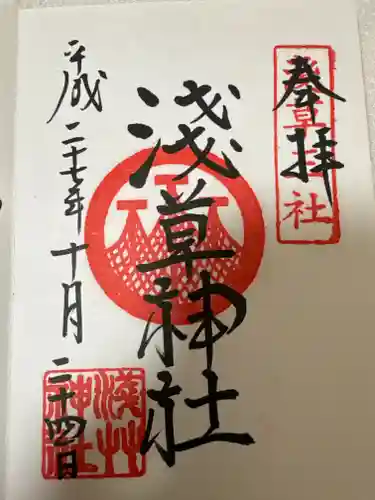 奉拝
浅草神社
浅草神社
平成二十七年十月二十四日
浅草神社